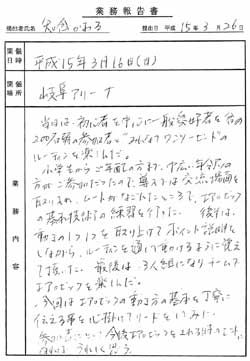 業務報告書
提出者氏名
提出日 平成 15年 3月 26日
開催日時
平成15年3月16日(日)
開催場所
岐阜アリーナ
業務内容
当日は、初心者を中心に一般愛好者を含め
の参加者と"みんなでワンツーセンド"の
ルーティンを楽しんだ。
小学生からご年配の方まで、幅広い年令の
方がご参加だったので、導入では交流場面を
取り入れ、ムードがなごんだところで、エアロビック
の基本技術の練習を行った。後半は、
動きの1つ1つを取り上げてポイント説明を
しながら、ルーティンを通して動けるように覚え
て頂いた。最後は、3人組になりチームで
エアロビックを楽しんだ。
今回はエアロビックの動き方の基本を丁寧に
伝える事を心掛けてリードをいたしました。
今後エアロビックをされる
うれしく思う。